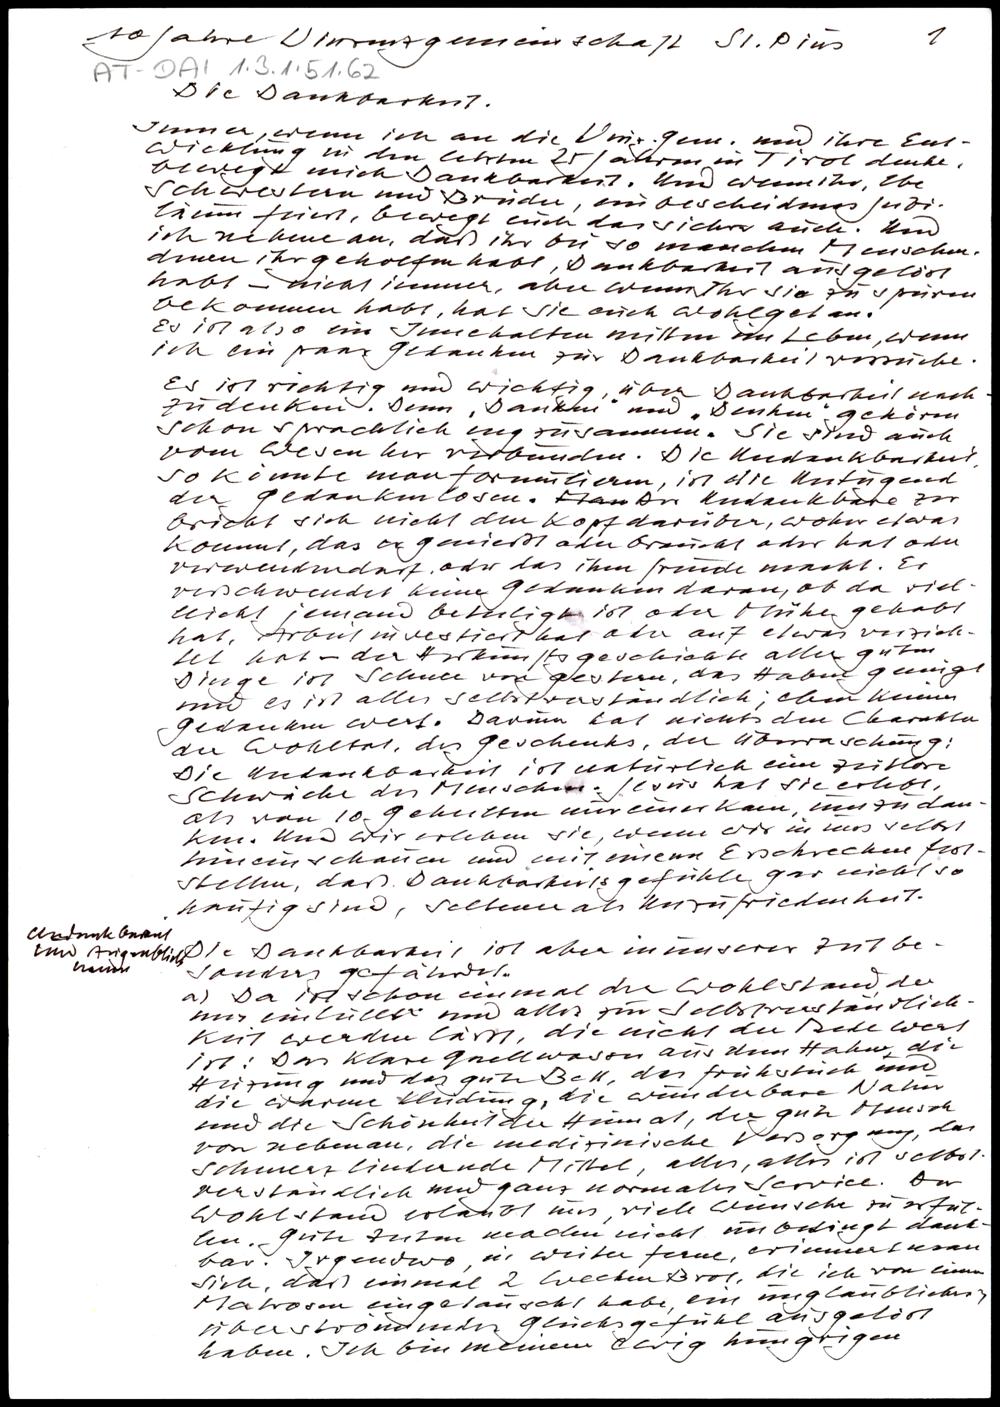 10 Jahre Vinzenzgemeinschaft St. Pius 1
AT-DAI 1.3.1.51.62
Die Dankbarkeit.
Immer, wenn ich an die Vinz.gem. und ihre Ent-
wicklung in den letzten 25 Jahren in Tirol denke,
bewegt mich Dankbarkeit. Und wenn ihr, lbe
Schwestern und Brüder, ein bescheidenes Jubi-
läum feiert, bewegt euch das sicher auch. Und
ich nehme an, daß ihr bei so manchen Menschen,
denen ihr geholfen habt, Dankbarkeit ausgelöst
habt – nicht immer, aber wenn Ihr sie zu spüren
bekommen habt, hat sie euch wohlgetan.
Es ist also ein Innehalten mitten im Leben, wenn
ich ein paar Gedanken zur Dankbarkeit versuche.
Es ist richtig und wichtig, über Dankbarkeit nach-
zudenken. Denn „Danken" und „Denken" gehören
schon sprachlich eng zusammen. Sie sind auch
vom Wesen her verbunden. Die Undankbarkeit,
so könnte man formulieren, ist die Untugend
der Gedankenlosen. Der Undankbare zer
bricht sich nicht den Kopf darüber, woher etwas
kommt, das er genießt oder braucht oder hat oder
verwenden darf, oder das ihm Freude macht. Er
verschwendet keine Gedanken daran, ob da viel-
leicht jemand beteiligt ist oder Mühe gehabt
hat, Arbeit investiert hat oder auf etwas verzich-
tet hat – die Herkunftsgeschichte aller guten
Dinge ist Schnee von gestern, das Haben genügt
und es ist alles selbstverständlich, eben keines
Gedanken wert. Darum hat nichts den Charakter
der Wohltat, des Geschenks, der Überraschung:
Die Undankbarkeit ist natürlich eine zeitlose
Schwäche des Menschen. Jesus hat sie erlebt,
als von 10 Geheilten nur einer kam, um zu dan-
ken. Und wir erleben sie, wenn wir in uns selbst
hineinschauen und mit einem Erschrecken fest-
stellen, daß Dankbarkeitsgefühle gar nicht so
häufig sind, seltener als Unzufriedenheit.
Undankbarkeit
und
Die Dankbarkeit ist aber in unserer Zeit be-
sonders gefährdet.
a) Da ist schon einmal der Wohlstand, der
uns einlullt und alles zur Selbstverständlich-
keit werden lässt, die nicht der Rede wert
ist: Das klare Quellwasser aus dem Hahn, die
Heizung und das gute Bett, das Frühstück und
die warme Kleidung, die wunderbare Natur
und die Schönheit der Heimat, der gute Mensch
von nebenan, die medizinische Versorgung, das
schmerzlindernde Mittel, alles, alles ist selbst-
verständlich und ganz normales Service. Der
Wohlstand erlaubt uns, viele Wünsche zu erfül-
len. Gute Zeiten machen nicht unbedingt dank-
bar. Irgendwo, in weiter Ferne, erinnert man
sich, daß einmal 2 Wecken Brot, die ich von einem
Matrosen eingetauscht habe, ein unglaubliches,
überströmendes Glücksgefühl ausgelöst
haben. Ich bin meinem ewig hungrigen